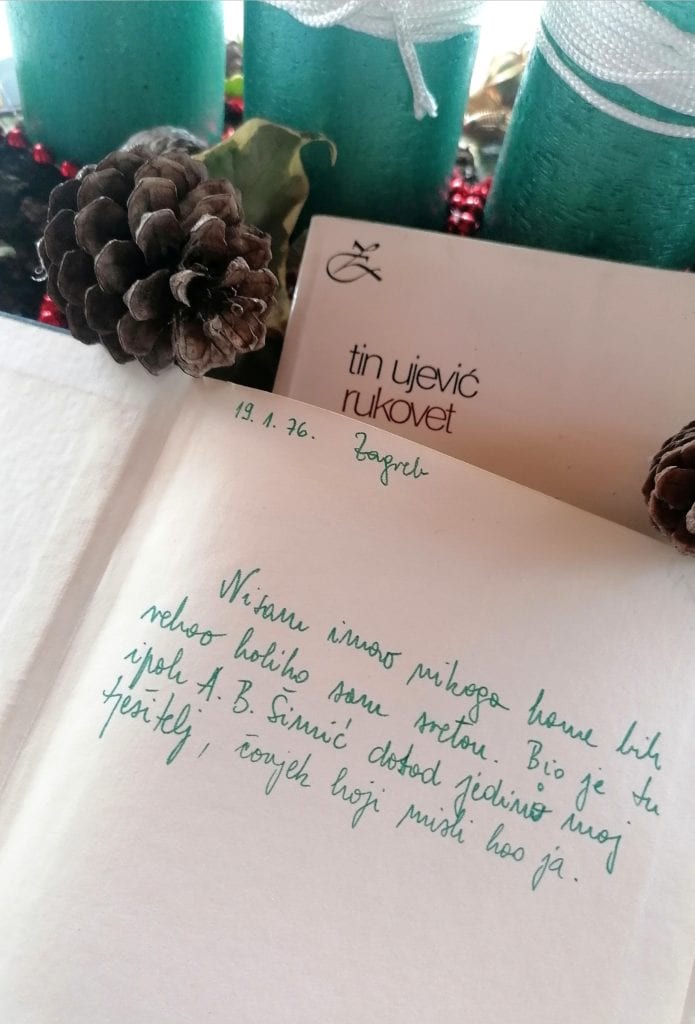 tin ujević
rukovet
19. 1. 76. Zagreb
Nisam imao nikoga kome bih
rekao koliko sam sretan. Bio je tu
ipak A. B. Šimić dotad jedino moj
tješitelj, čovjek koji misli kao ja.